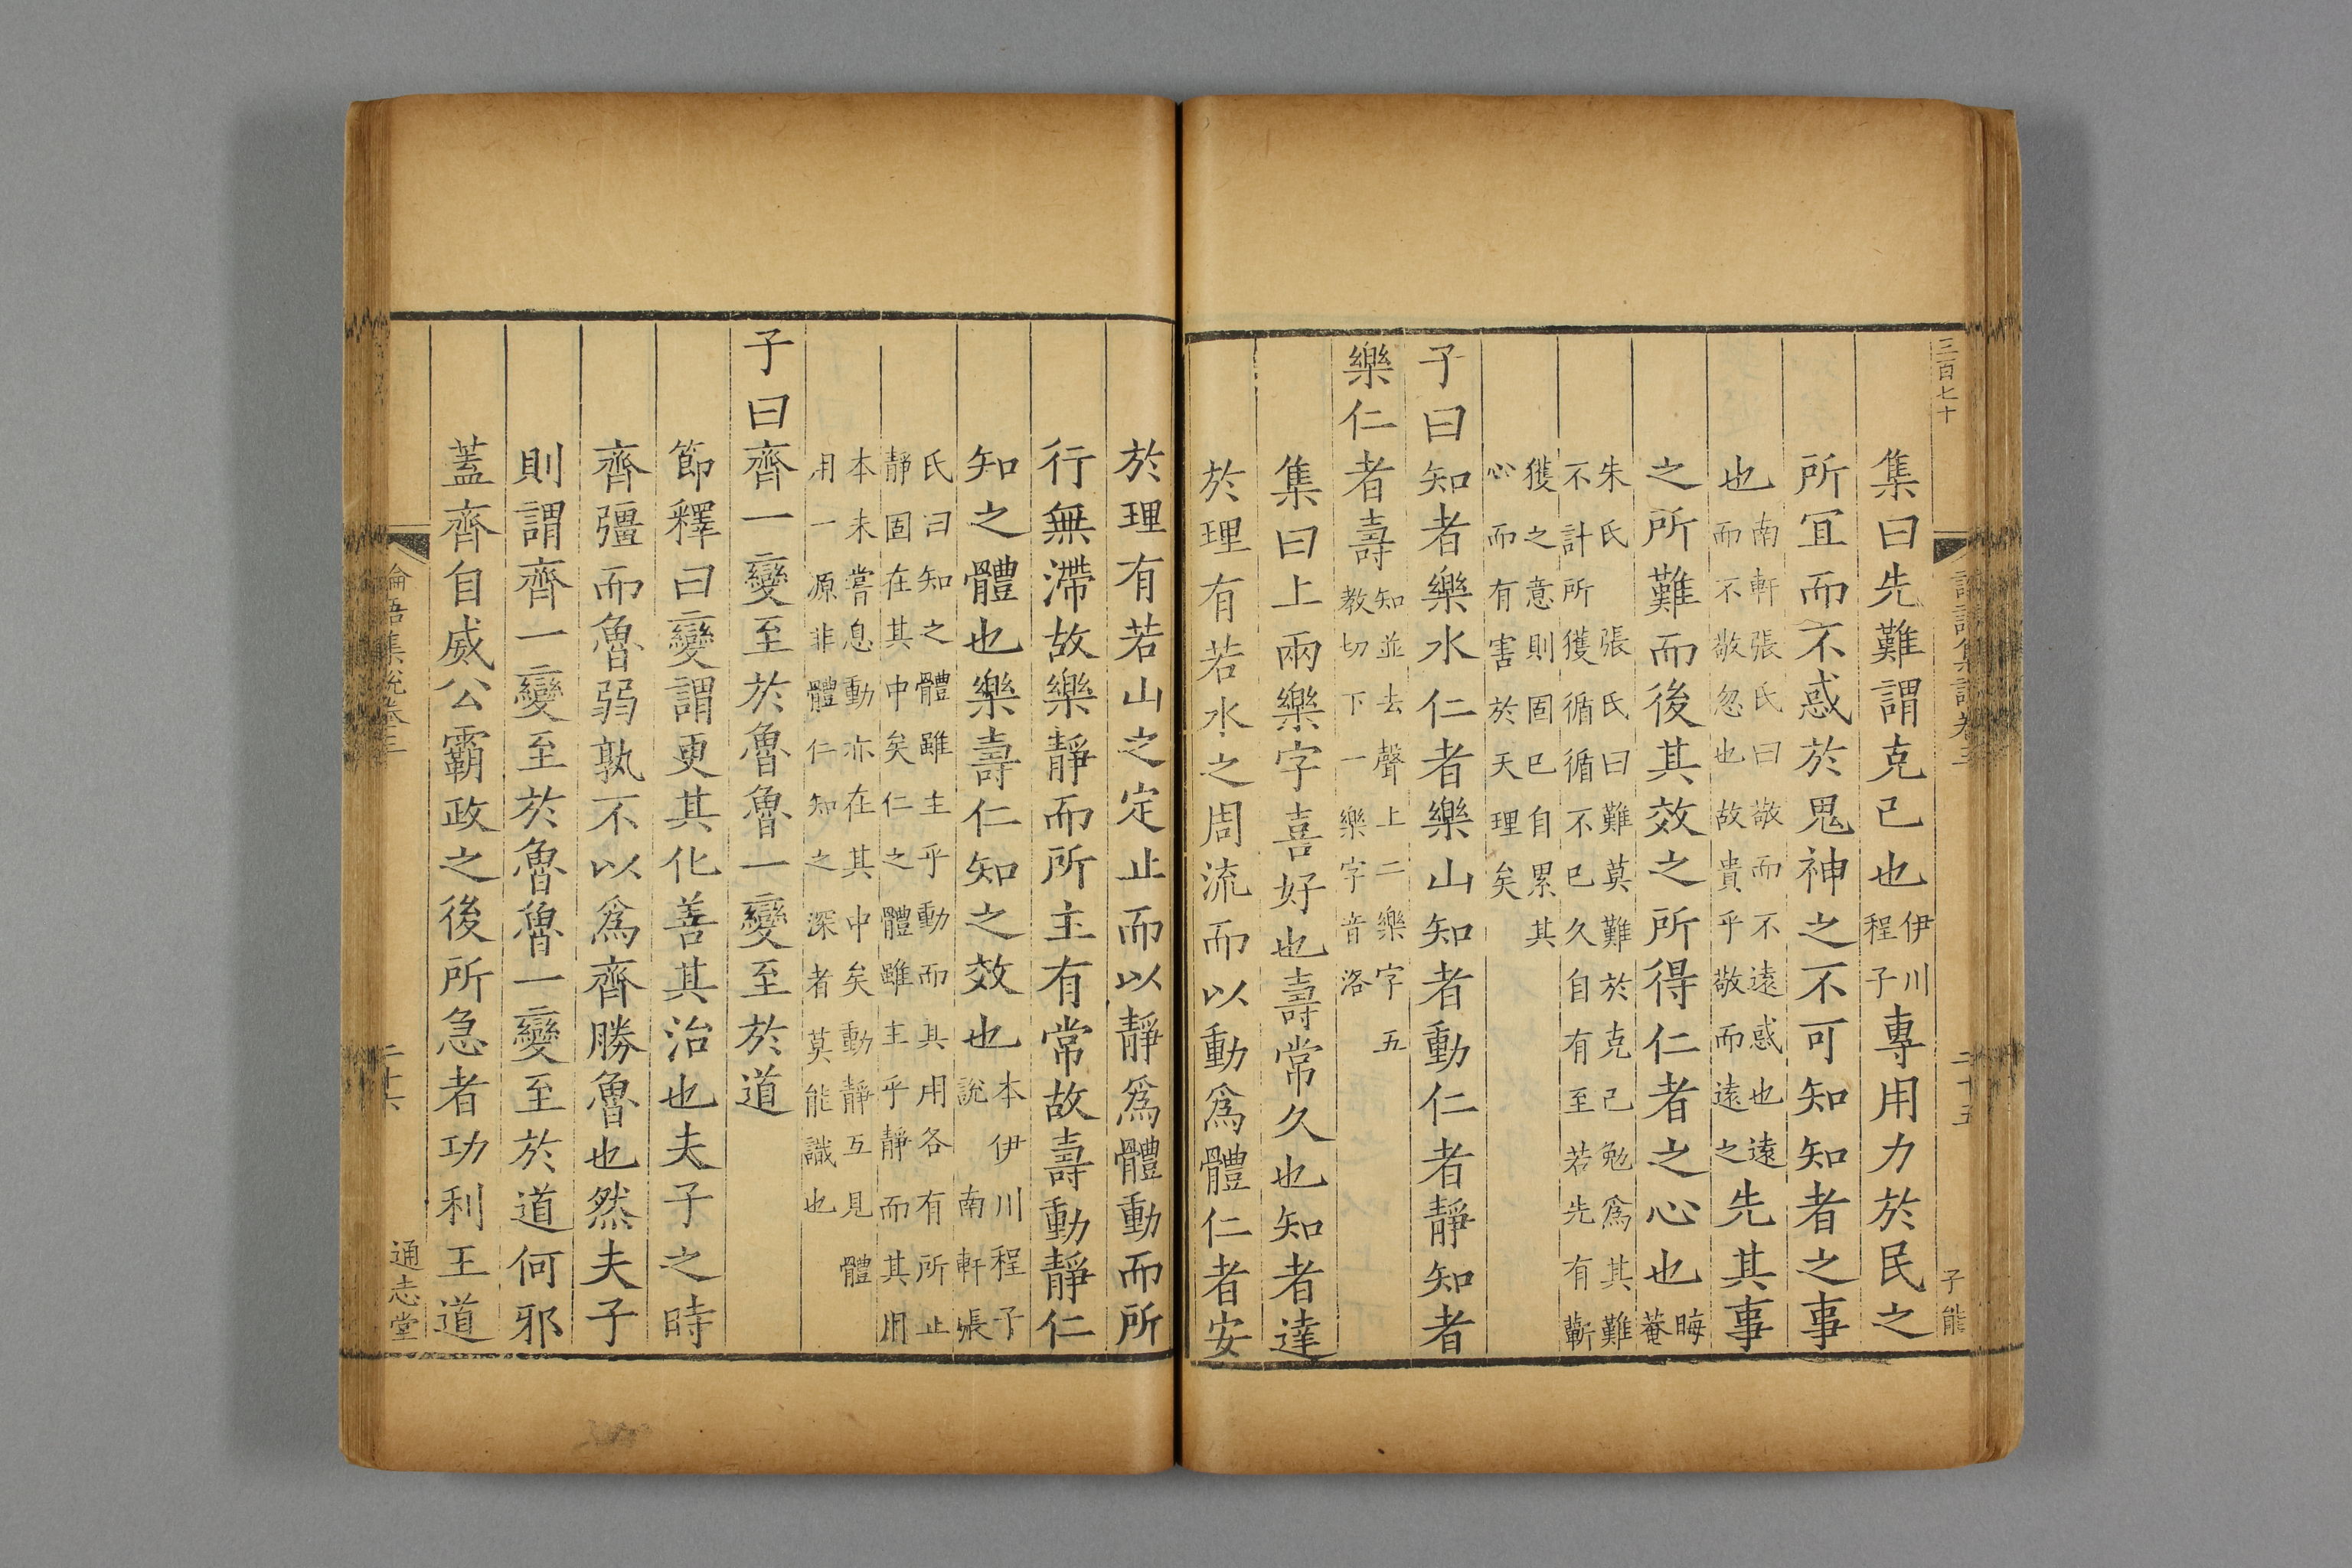 三百七十
論語集說卷三
二十五
子能
集曰先難謂克己也伊川程子專用力於民之
所宜而不惑於鬼神之不可知知者之事
也南軒張氏曰敬而不遠惑也遠而不敬忽也故貴乎敬而遠之先其事
之所難而後其效之所得仁者之心也晦菴
朱氏 張氏曰難莫難於克己勉爲其難
不計所獲循循不已久自有至若先有蘄
獲之意則固已自累其
心而有害於天理矣
子曰知者樂水仁者樂山知者動仁者靜知者
樂仁者壽知並去聲上二樂字五教切下一樂字音洛
集曰上兩樂字喜好也壽常久也知者達
於理有若水之周流而以動爲體仁者安
於理有若山之定止而以靜爲體動而所
行無滯故樂靜而所主有常故壽動靜仁
知之體也樂壽仁知之效也本伊川程子說 南軒張
氏曰知之體雖主乎動而其用各有所止
靜固在其中矣仁之體雖主乎靜而其用
本未嘗息動亦在其中矣動靜互見體
用一原非體仁知之深者莫能識也
子曰齊一變至於魯魯一變至於道
節釋曰變謂更其化善其治也夫子之時
齊彊而魯弱孰不以爲齊勝魯也然夫子
則謂齊一變至於魯魯一變至於道何邪
蓋齊自威公霸政之後所急者功利王道
論語集說卷三
二十六
通志堂